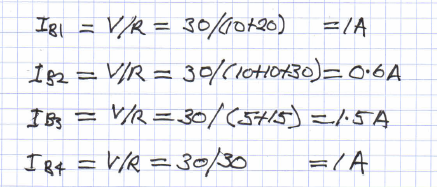 I B1 = V/R = 30/(10+20) = 1A
I B2 = V/R = 30/(10+10+30) = 0.6A
I B3 = V/R = 30/(5+15) = 1.5A
I B4 = V/R = 30/30 = 1A